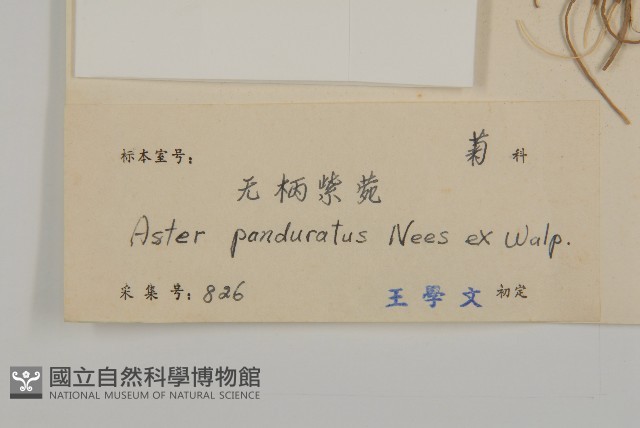 标本室号：
菊 科
无柄紫菀
Aster panduratus Nees ex Walp.
采集号：826
王學文 初定
國立自然科學博物館
NATIONAL MUSEUM OF NATURAL SCIENCE